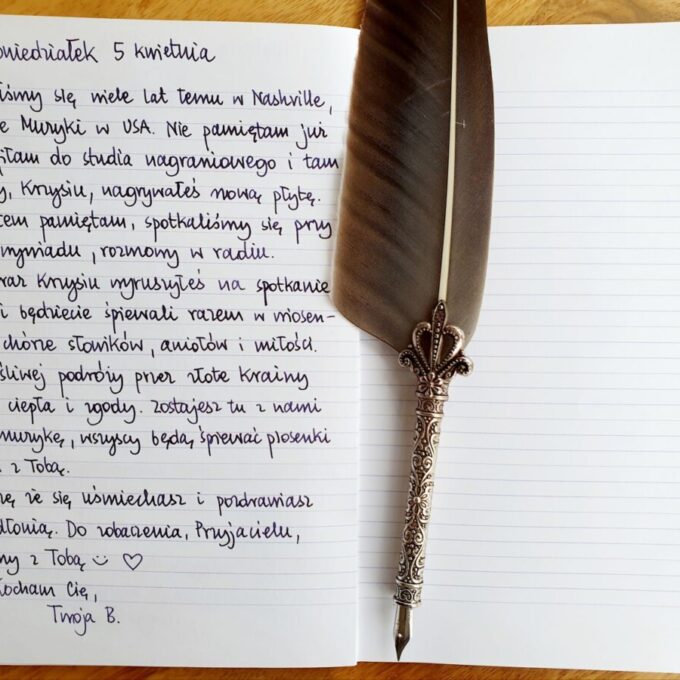 oniedziałek 5 kwietnia
iśmy się wiele lat temu w Nashville,
e Muzyki w USA. Nie pamiętam już
tam do studia nagraniowego i tam
y, Krzysiu, nagrywałeś nową płytę.
tem pamiętam, spotkaliśmy się przy
wywiadu, rozmowy w radiu.
raz Krzysiu wyruszyłeś na spotkanie
i będziecie śpiewali razem w niosen-
chórze słowików, aniołów i miłości.
śliwej podróży przez złote krainy
ciepła i zgody. Zostajesz tu z nami
muzykę, wszyscy będą śpiewać piosenki
z Tobą.
ę że się uśmiechasz i pozdrawiasz
dłonią. Do zobaczenia, Przyjacielu,
my z Tobą
Kocham Cię,
Twoja B.